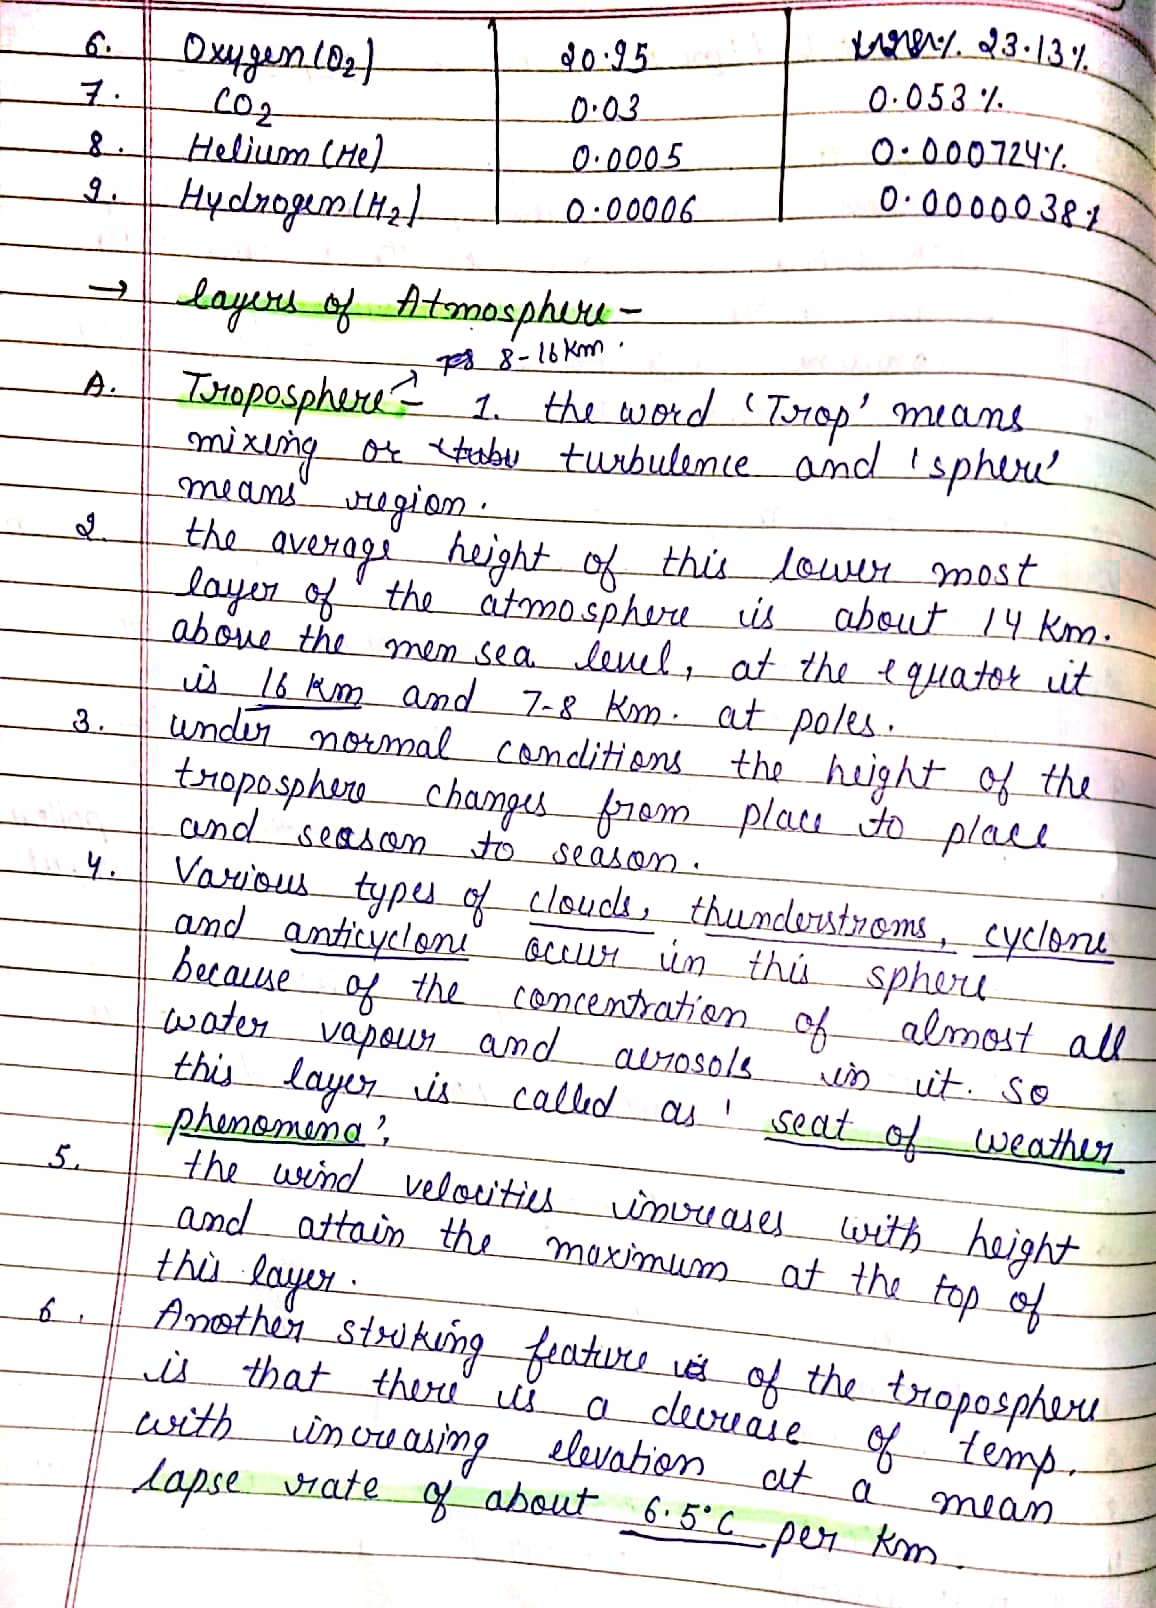 6. Oxygen (O2) 20.95 23.13%
7. CO2 0.03 0.053%
8. Helium (He) 0.0005 0.000724%
9. Hydrogen (H2) 0.00006 0.0000038%
→ layers of Atmosphere –
8-16 Km.
A. Troposphere – 1. the word 'Trop' means
mixing or turbulence and 'sphere'
means region.
2. the average height of this lower most
layer of the atmosphere is about 14 Km.
above the men sea level, at the equator it
is 16 Km and 7-8 Km. at poles.
3. under normal conditions the height of the
troposphere changes from place to place
and season to season.
4. Various types of clouds, thunderstroms, cyclone
and anticyclone occur in this sphere
because of the concentration of almost all
water vapour and aerosols in it. so
this layer is called as 'seat of weather
phenomena'.
5. the wind velocities increases with height
and attain the maximum at the top of
this layer.
6. Another striking feature of the troposphere
is that there is a decrease of temp.
with increasing elevation at a mean
lapse rate of about 6.5°C per Km.